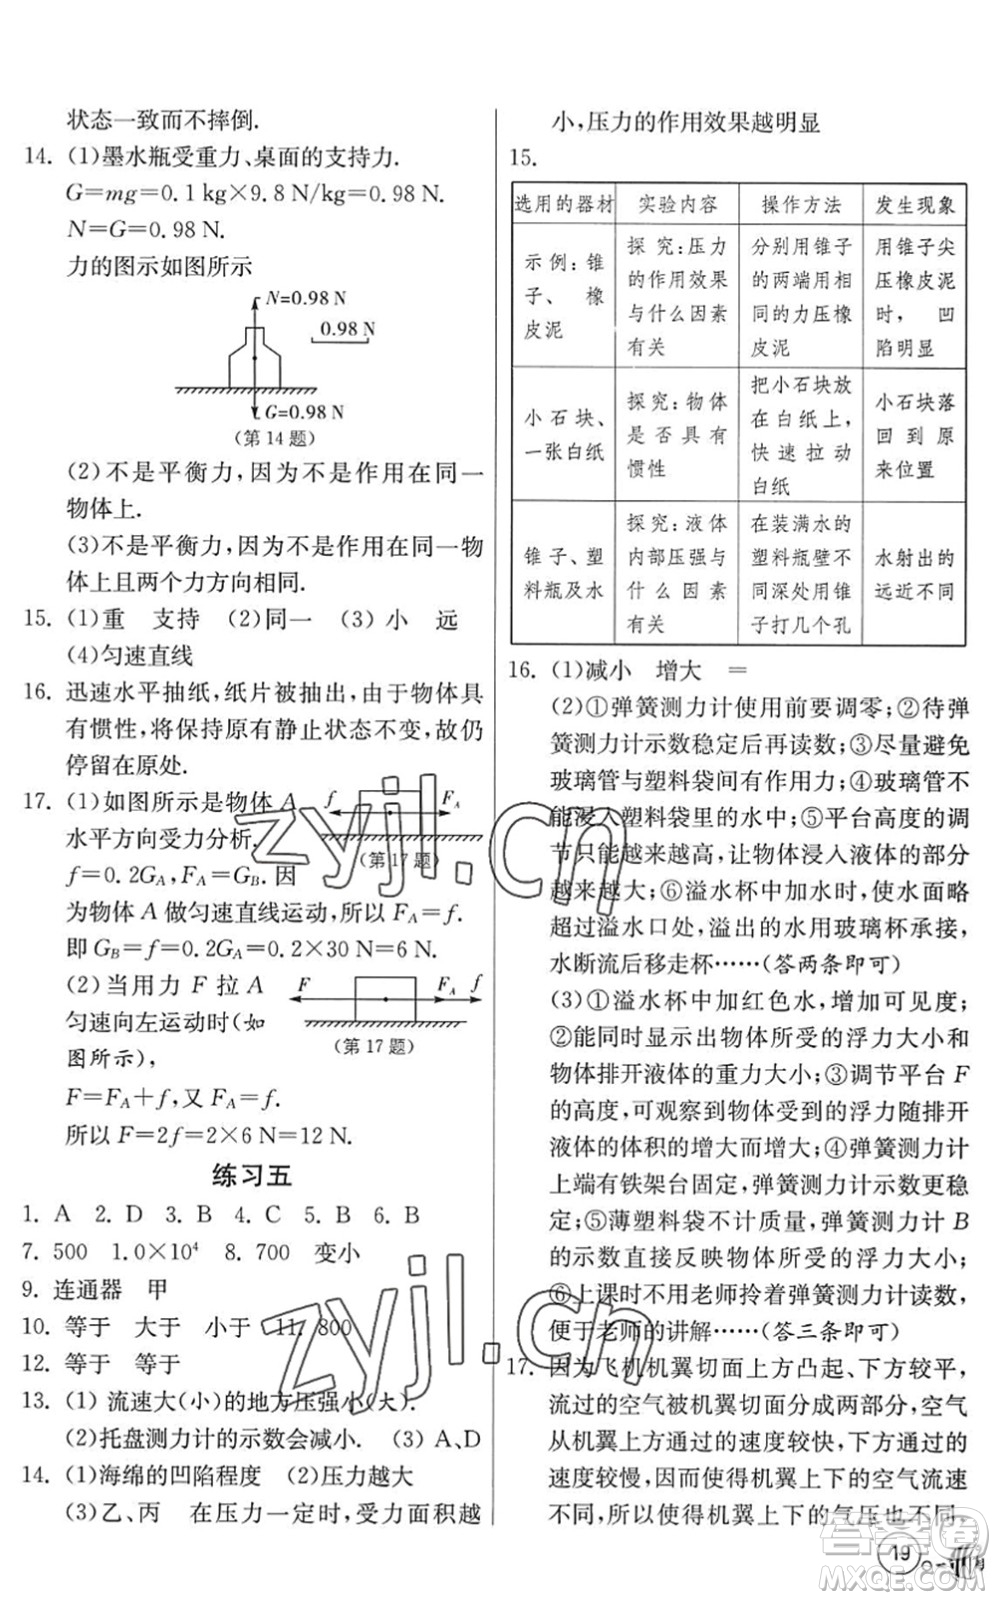 状态一致而不摔倒.
14. (1)墨水瓶受重力、桌面的支持力.
G=mg=0.1 kg×9.8 N/kg=0.98 N.
N=G=0.98 N.
力的图示如图所示
N=0.98 N
0.98 N
G=0.98 N
(第14题)
(2)不是平衡力,因为不是作用在同一
物体上.
(3)不是平衡力,因为不是作用在同一物
体上且两个力方向相同.
15. (1)重 支持 (2)同一 (3)小 远
(4)匀速直线
16. 迅速水平抽纸,纸片被抽出,由于物体具
有惯性,将保持原有静止状态不变,故仍
停留在原处.
17. (1)如图所示是物体 A
水平方向受力分析.
f=0.2G_A,F_A=G_B. 因
f F_A
(第17题)
为物体 A 做匀速直线运动,所以 F_A=f.
即 G_B=f=0.2G_A=0.2×30 N=6 N.
(2)当用力 F 拉 A
匀速向左运动时(如
图所示),
F F_A f
(第17题)
F=F_A+f,又 F_A=f.
所以 F=2f=2×6 N=12 N.
练习五
1. A 2. D 3. B 4. C 5. B 6. B
7. 500 1.0×10⁴ 8. 700 变小
9. 连通器 甲
10. 等于 大于 小于 11. 800
12. 等于 等于
13. (1) 流速大(小)的地方压强小(大).
(2)托盘测力计的示数会减小. (3) A、D
14. (1)海绵的凹陷程度 (2)压力越大
(3)乙、丙 在压力一定时,受力面积越
小,压力的作用效果越明显
15.
选用的器材 实验内容 操作方法 发生现象
示例:锥
子、橡
皮泥
探究:压力
的作用效果
与什么因素
有关
分别用锥子
的两端用相
同的力压橡
皮泥
用锥子尖
压橡皮泥
时,凹
陷明显
小石块、
一张白纸
探究:物体
是否具有
惯性
把小石块放
在白纸上,
快速拉动
白纸
小石块落
回到原
来位置
锥子、塑
料瓶及水
探究:液体
内部压强与
什么因素
有关
在装满水的
塑料瓶壁不
同深处用锥
子打几个孔
水射出的
远近不同
16. (1)减小 增大 =
(2)①弹簧测力计使用前要调零;②待弹
簧测力计示数稳定后再读数;③尽量避免
玻璃管与塑料袋间有作用力;④玻璃管不
能浸入塑料袋里的水中;⑤平台高度的调
节只能越来越高,让物体浸入液体的部分
越来越大;⑥溢水杯中加水时,使水面略
超过溢水口处,溢出的水用玻璃杯承接,
水断流后移走杯……(答两条即可)
(3)①溢水杯中加红色水,增加可见度;
②能同时显示出物体所受的浮力大小和
物体排开液体的重力大小;③调节平台 F
的高度,可观察到物体受到的浮力随排开
液体的体积的增大而增大;④弹簧测力计
上端有铁架台固定,弹簧测力计示数更稳
定;⑤薄塑料袋不计质量,弹簧测力计 B
的示数直接反映物体所受的浮力大小;
⑥上课时不用老师拎着弹簧测力计读数,
便于老师的讲解……(答三条即可)
17. 因为飞机机翼切面上方凸起、下方较平,
流过的空气被机翼切面分成两部分,空气
从机翼上方通过的速度较快,下方通过的
速度较慢,因而使得机翼上下的空气流速
不同,所以机翼上下的气压也不同,
19
zyjl.cn
zyjl.cn
答案圈
MXQE.COM